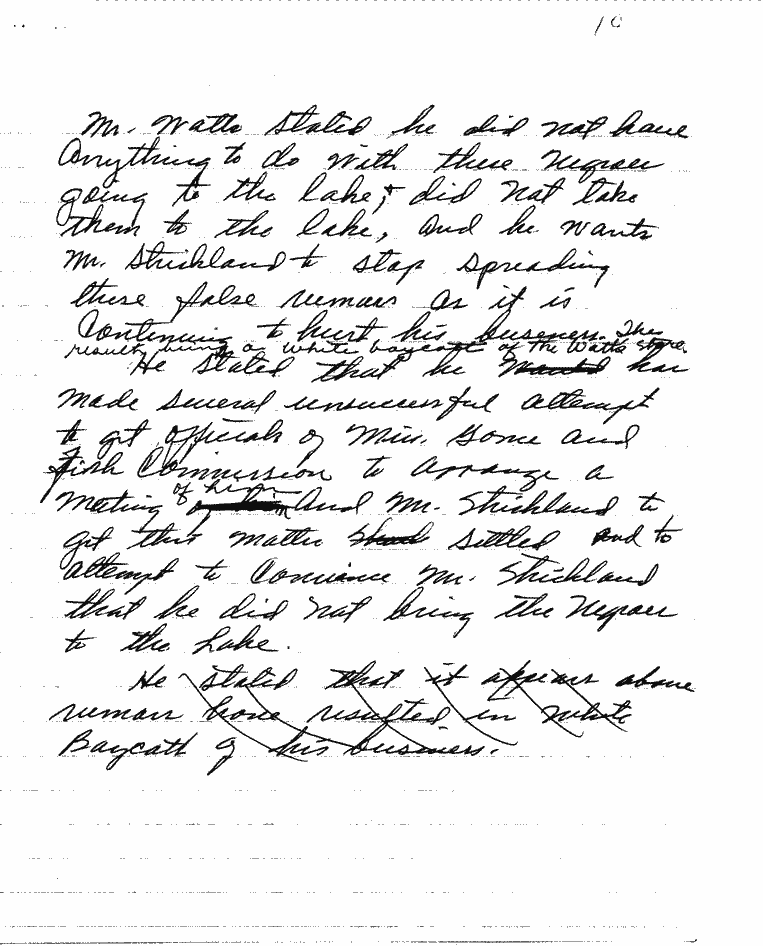 10
Mr. Watts stated he did not have
anything to do with these Negroes
going to the lake, & did not take
them to the lake, and he wants
Mr. Strickland to stop spreading
these false rumors as it is
continuing to hurt his business. The
result being a white boycott of the Watts store.
He stated that he wants has
made several unsuccessful attempt
to get officials of Miss. Game and
Fish Commission to arrange a
meeting of him and Mr. Strickland to
get this matter settled and to
attempt to convince Mr. Strickland
that he did not bring the Negroes
to the Lake.
He stated that it appears above
rumors have resulted in white
Boycott of his business.